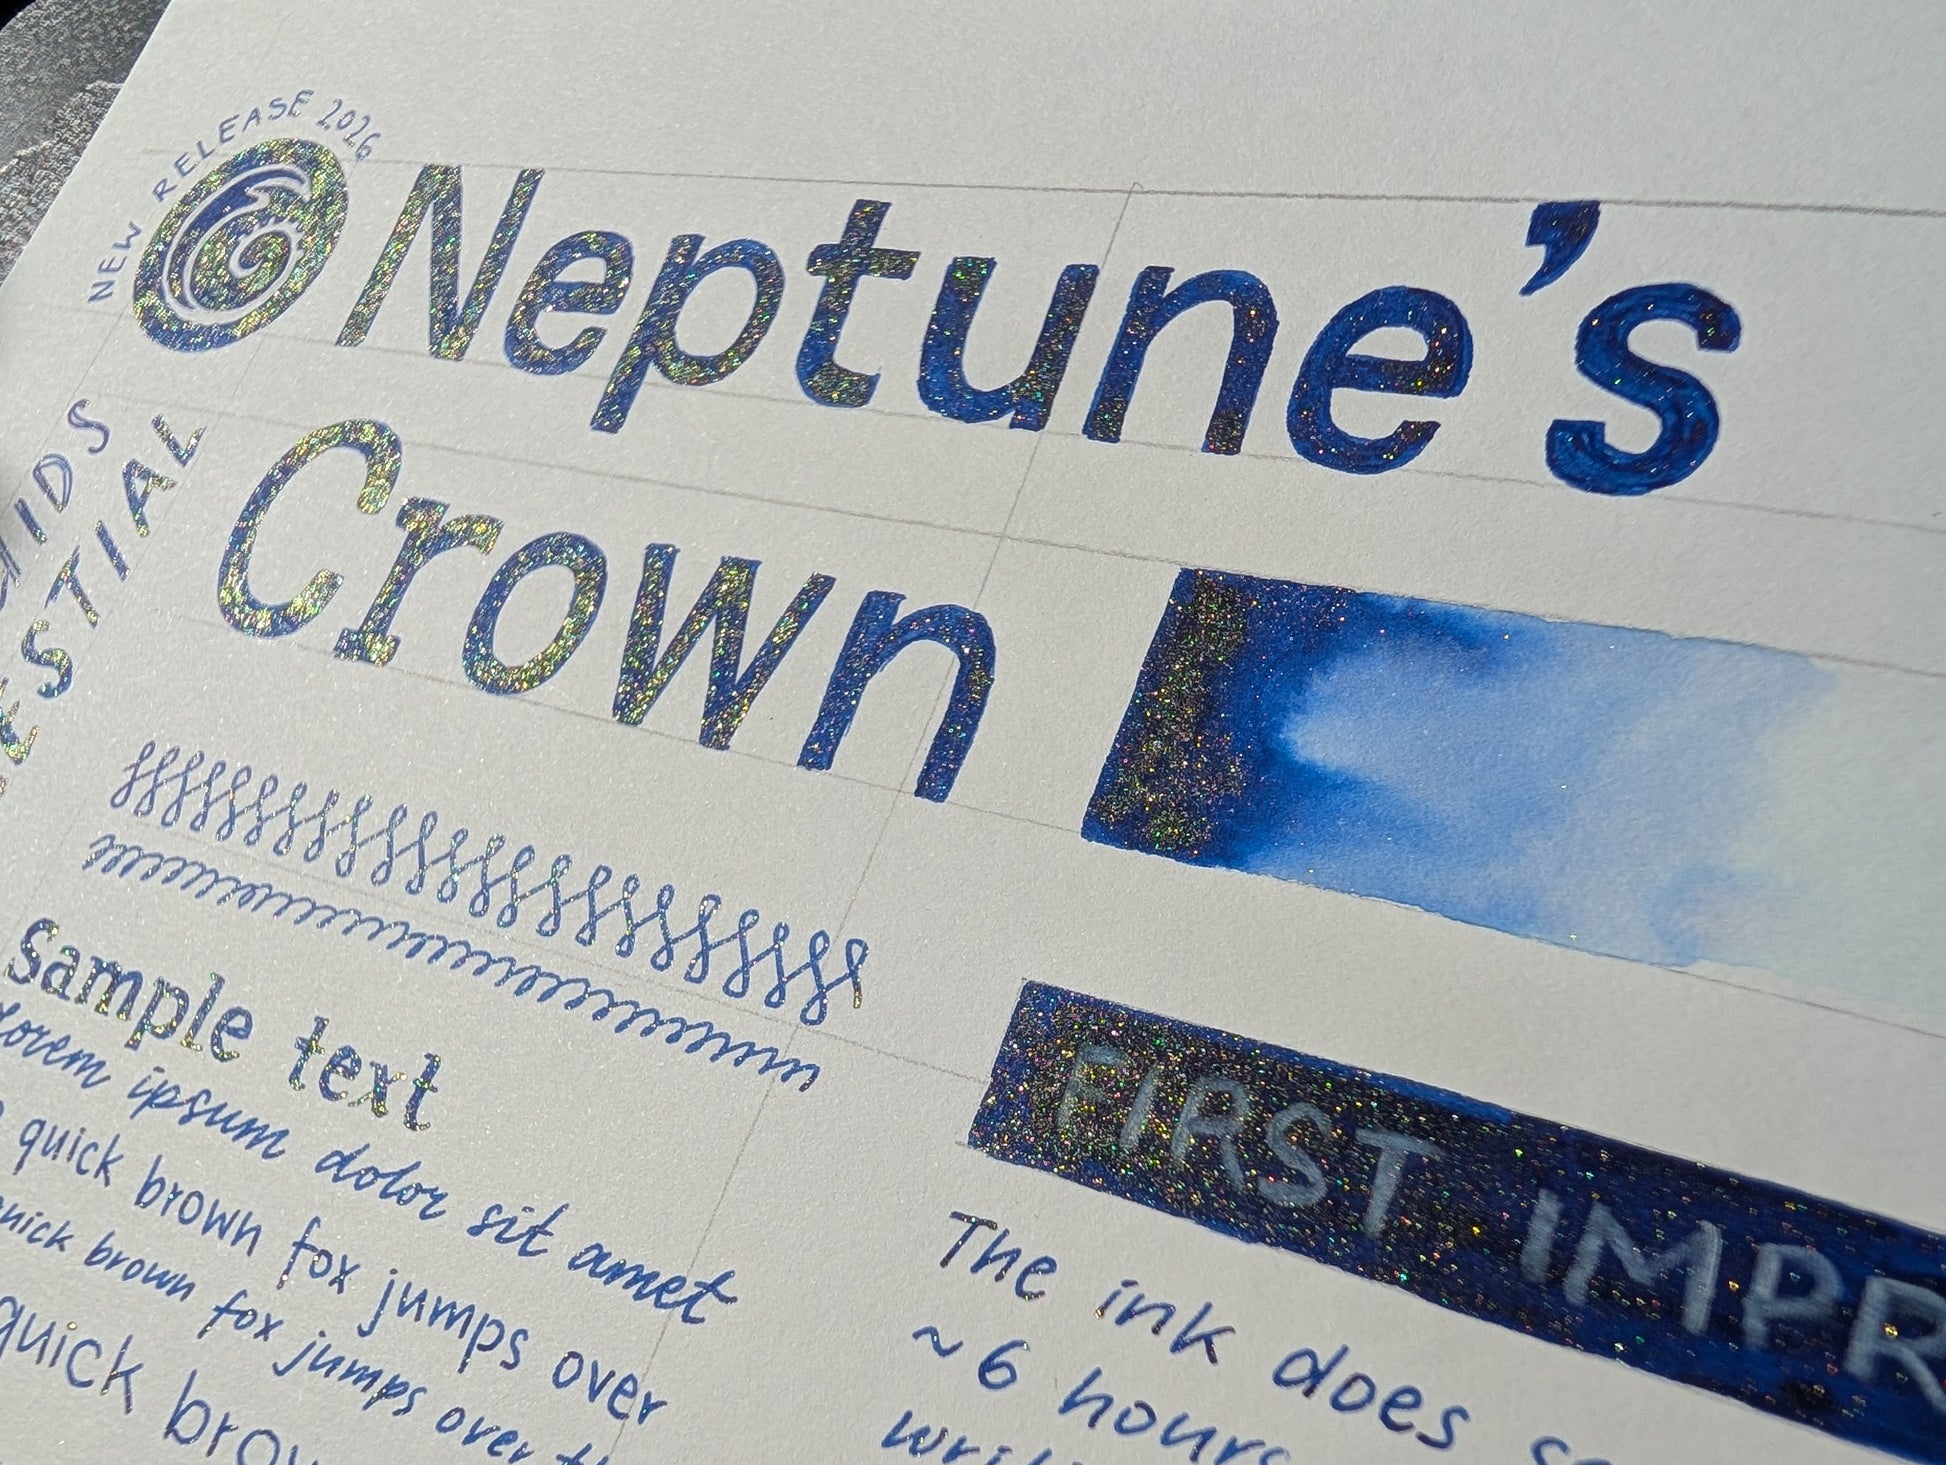 NEW RELEASE 2026
Neptune's
Crown
Sample text
lorem ipsum dolor sit amet
quick brown fox jumps over
quick brown fox jumps over
quick
FIRST
The ink does
~6 hours